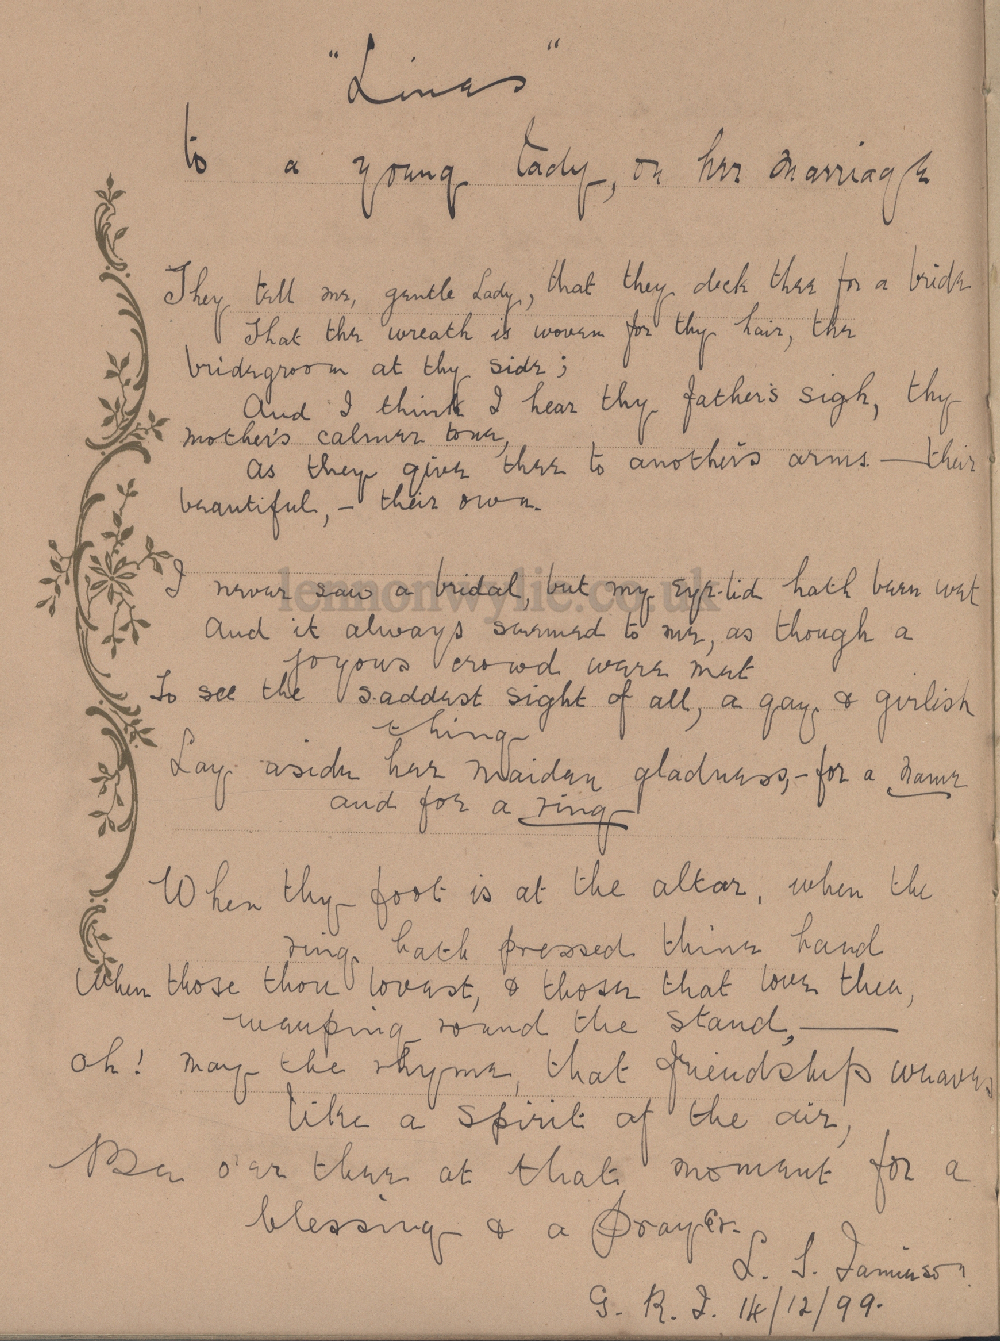 "Lines"
to a young lady, on her marriage
They tell me, gentle Lady, that they deck thee for a bride
That the wreath is woven for thy hair, the
bridegroom at thy side;
And I think I hear thy father's sigh, thy
mother's calmer tone,
As they give thee to another's arms — their
beautiful, — their own.
I never saw a bridal, but my eye-lid hath been wet
And it always seemed to me, as though a
joyous crowd were met
To see the saddest sight of all, a gay & girlish
thing
Lay aside her maiden gladness, – for a name
and for a ring
When thy foot is at the altar, when the
ring hath pressed thine hand
When those thou lovest, & those that love thee,
weeping round the stand, —
Oh! may the rhyme, that friendship weaves
like a spirit of the air,
Be o'er thee at that moment for a
blessing & a prayer.
L. S. Jamieson
G. R. I. 14/12/99.
lennonwylie.co.uk